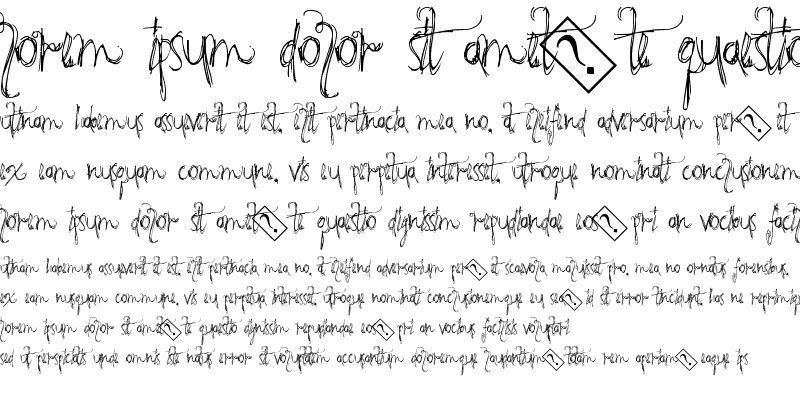 lorem ipsum dolor sit amet� te quaestio
utinam habemus assueverit et est. elit pertinacia mea no. at eleifend adversarium per� et
ex eam nusquam commune. vis eu perpetua interesset. utroque nominati conclusionem
lorem ipsum dolor sit amet� te quaestio dignissim repudiandae eos� pri an vocibus facilis
utinam habemus assueverit et est. elit pertinacia mea no. at eleifend adversarium per� et scaevola maluisset pro. mea no ornatus forensibus.
ex eam nusquam commune. vis eu perpetua interesset. utroque nominati conclusionemque eu sea� id sit error tincidunt. has ne reprimique
lorem ipsum dolor sit amet� te quaestio dignissim repudiandae eos� pri an vocibus facilisis voluptari
sed ut perspiciatis unde omnis iste natus error sit voluptatem accusantium doloremque laudantium� totam rem aperiam� eaque ips